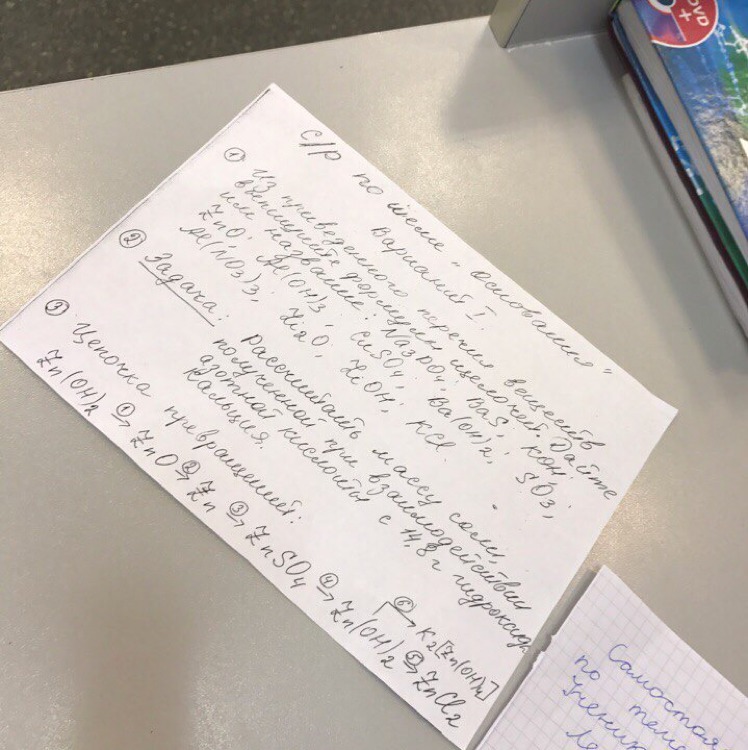 с/р по теме "Основания"
Вариант I.
① Из приведенного перечня веществ
выпишите формулы щелочей. Дайте
им названия: Na3PO4; BaS; KOH;
ZnO; Al(OH)3; CuSO4; Ba(OH)2; SO3;
Al(NO3)3; Li2O; LiOH; KCl.
② Задача: Рассчитать массу соли,
полученной при взаимодействии
азотной кислоты с 14,8 г гидроксида
кальция.
③ Цепочка превращений:
Zn(OH)2 ①→ ZnO ②→ Zn ③→ ZnSO4 ④→ Zn(OH)2 ⑤→ ZnCl2
⑥→ K2[Zn(OH)4]
Самостоя
по теме
ученик